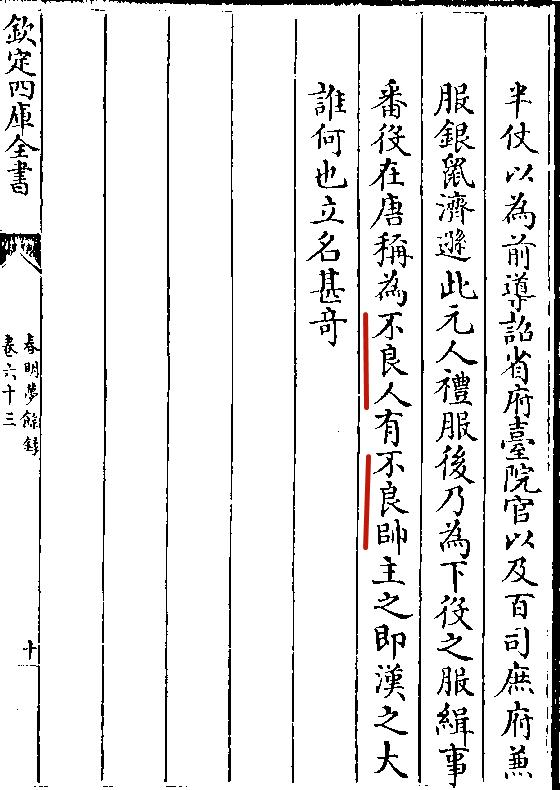 半仗以為前導詔省府臺院官以及百司庶府兼
服銀鼠濟遜此元人禮服後乃為下役之服緝事
番役在唐稱為不良人有不良帥主之即漢之大
誰何也立名甚奇
欽定四庫全書
春明夢餘錄
卷六十三
十